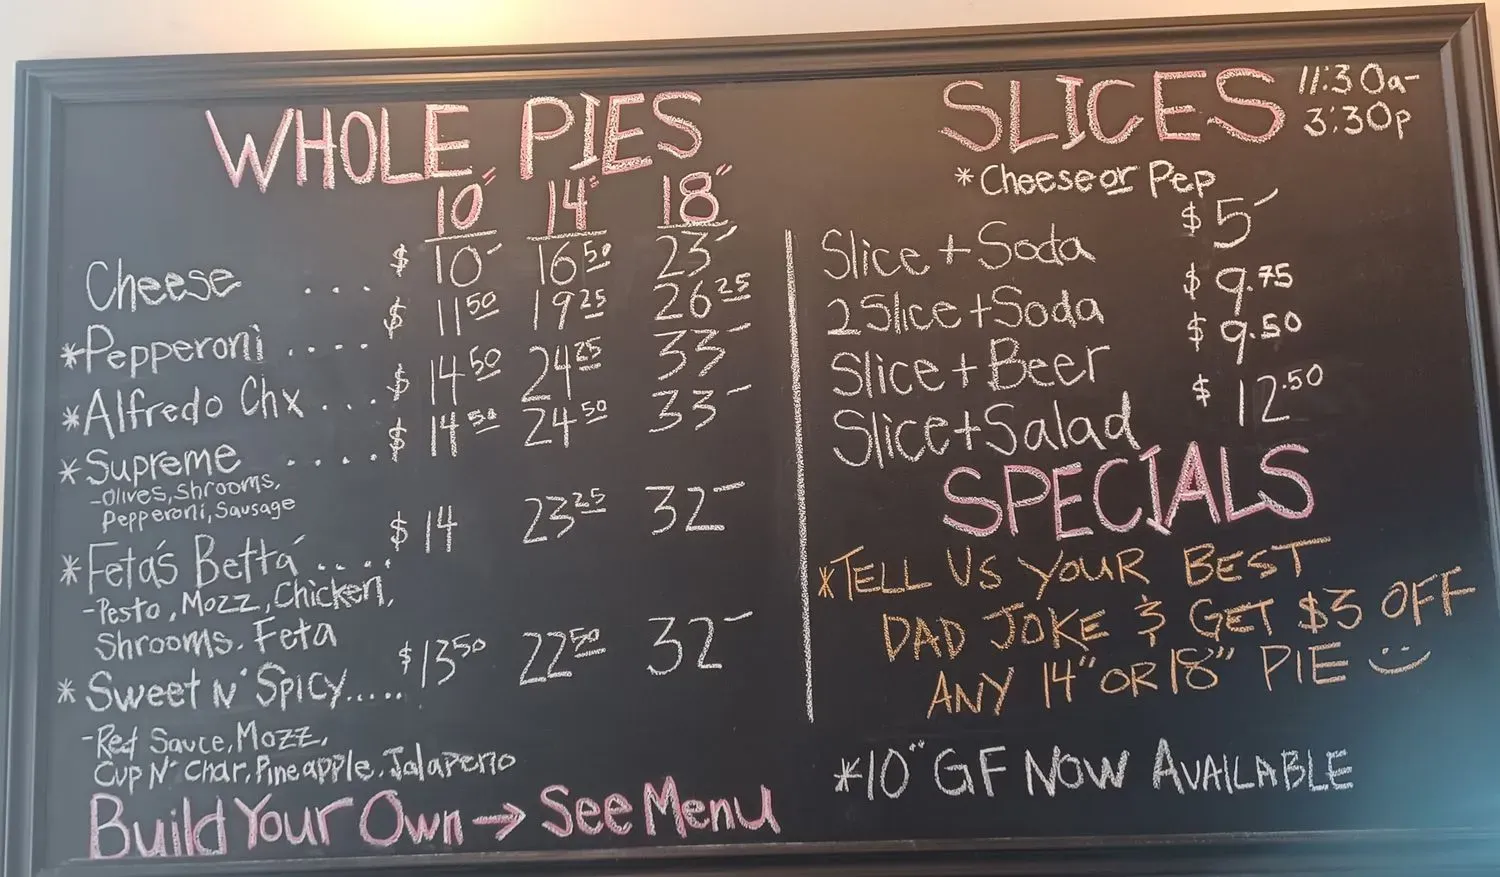 WHOLE PIES
10" 14" 18"
Cheese ... $ 10 16.50 23
*Pepperoni .... $ 11.50 19.25 26.25
*Alfredo Chx ... $ 14.50 24.25 33
*Supreme .... $ 14.50 24.50 33
-Olives, Shrooms,
Pepperoni, Sausage
*Feta's Betta' .... $ 14 23.25 32
-Pesto, Mozz, Chicken,
Shrooms. Feta
*Sweet N' Spicy..... $13.50 22.50 32
-Red Sauce, Mozz,
Cup N' Char, Pineapple, Jalapeno
Build Your Own → See Menu
SLICES 11:30a-
3:30p
*Cheese or Pep
Slice + Soda $ 5
2 Slice + Soda $ 9.75
Slice + Beer $ 9.50
Slice + Salad $ 12.50
SPECIALS
*TELL US YOUR BEST
DAD JOKE & GET $3 OFF
ANY 14" OR 18" PIE
*10" GF NOW AVAILABLE